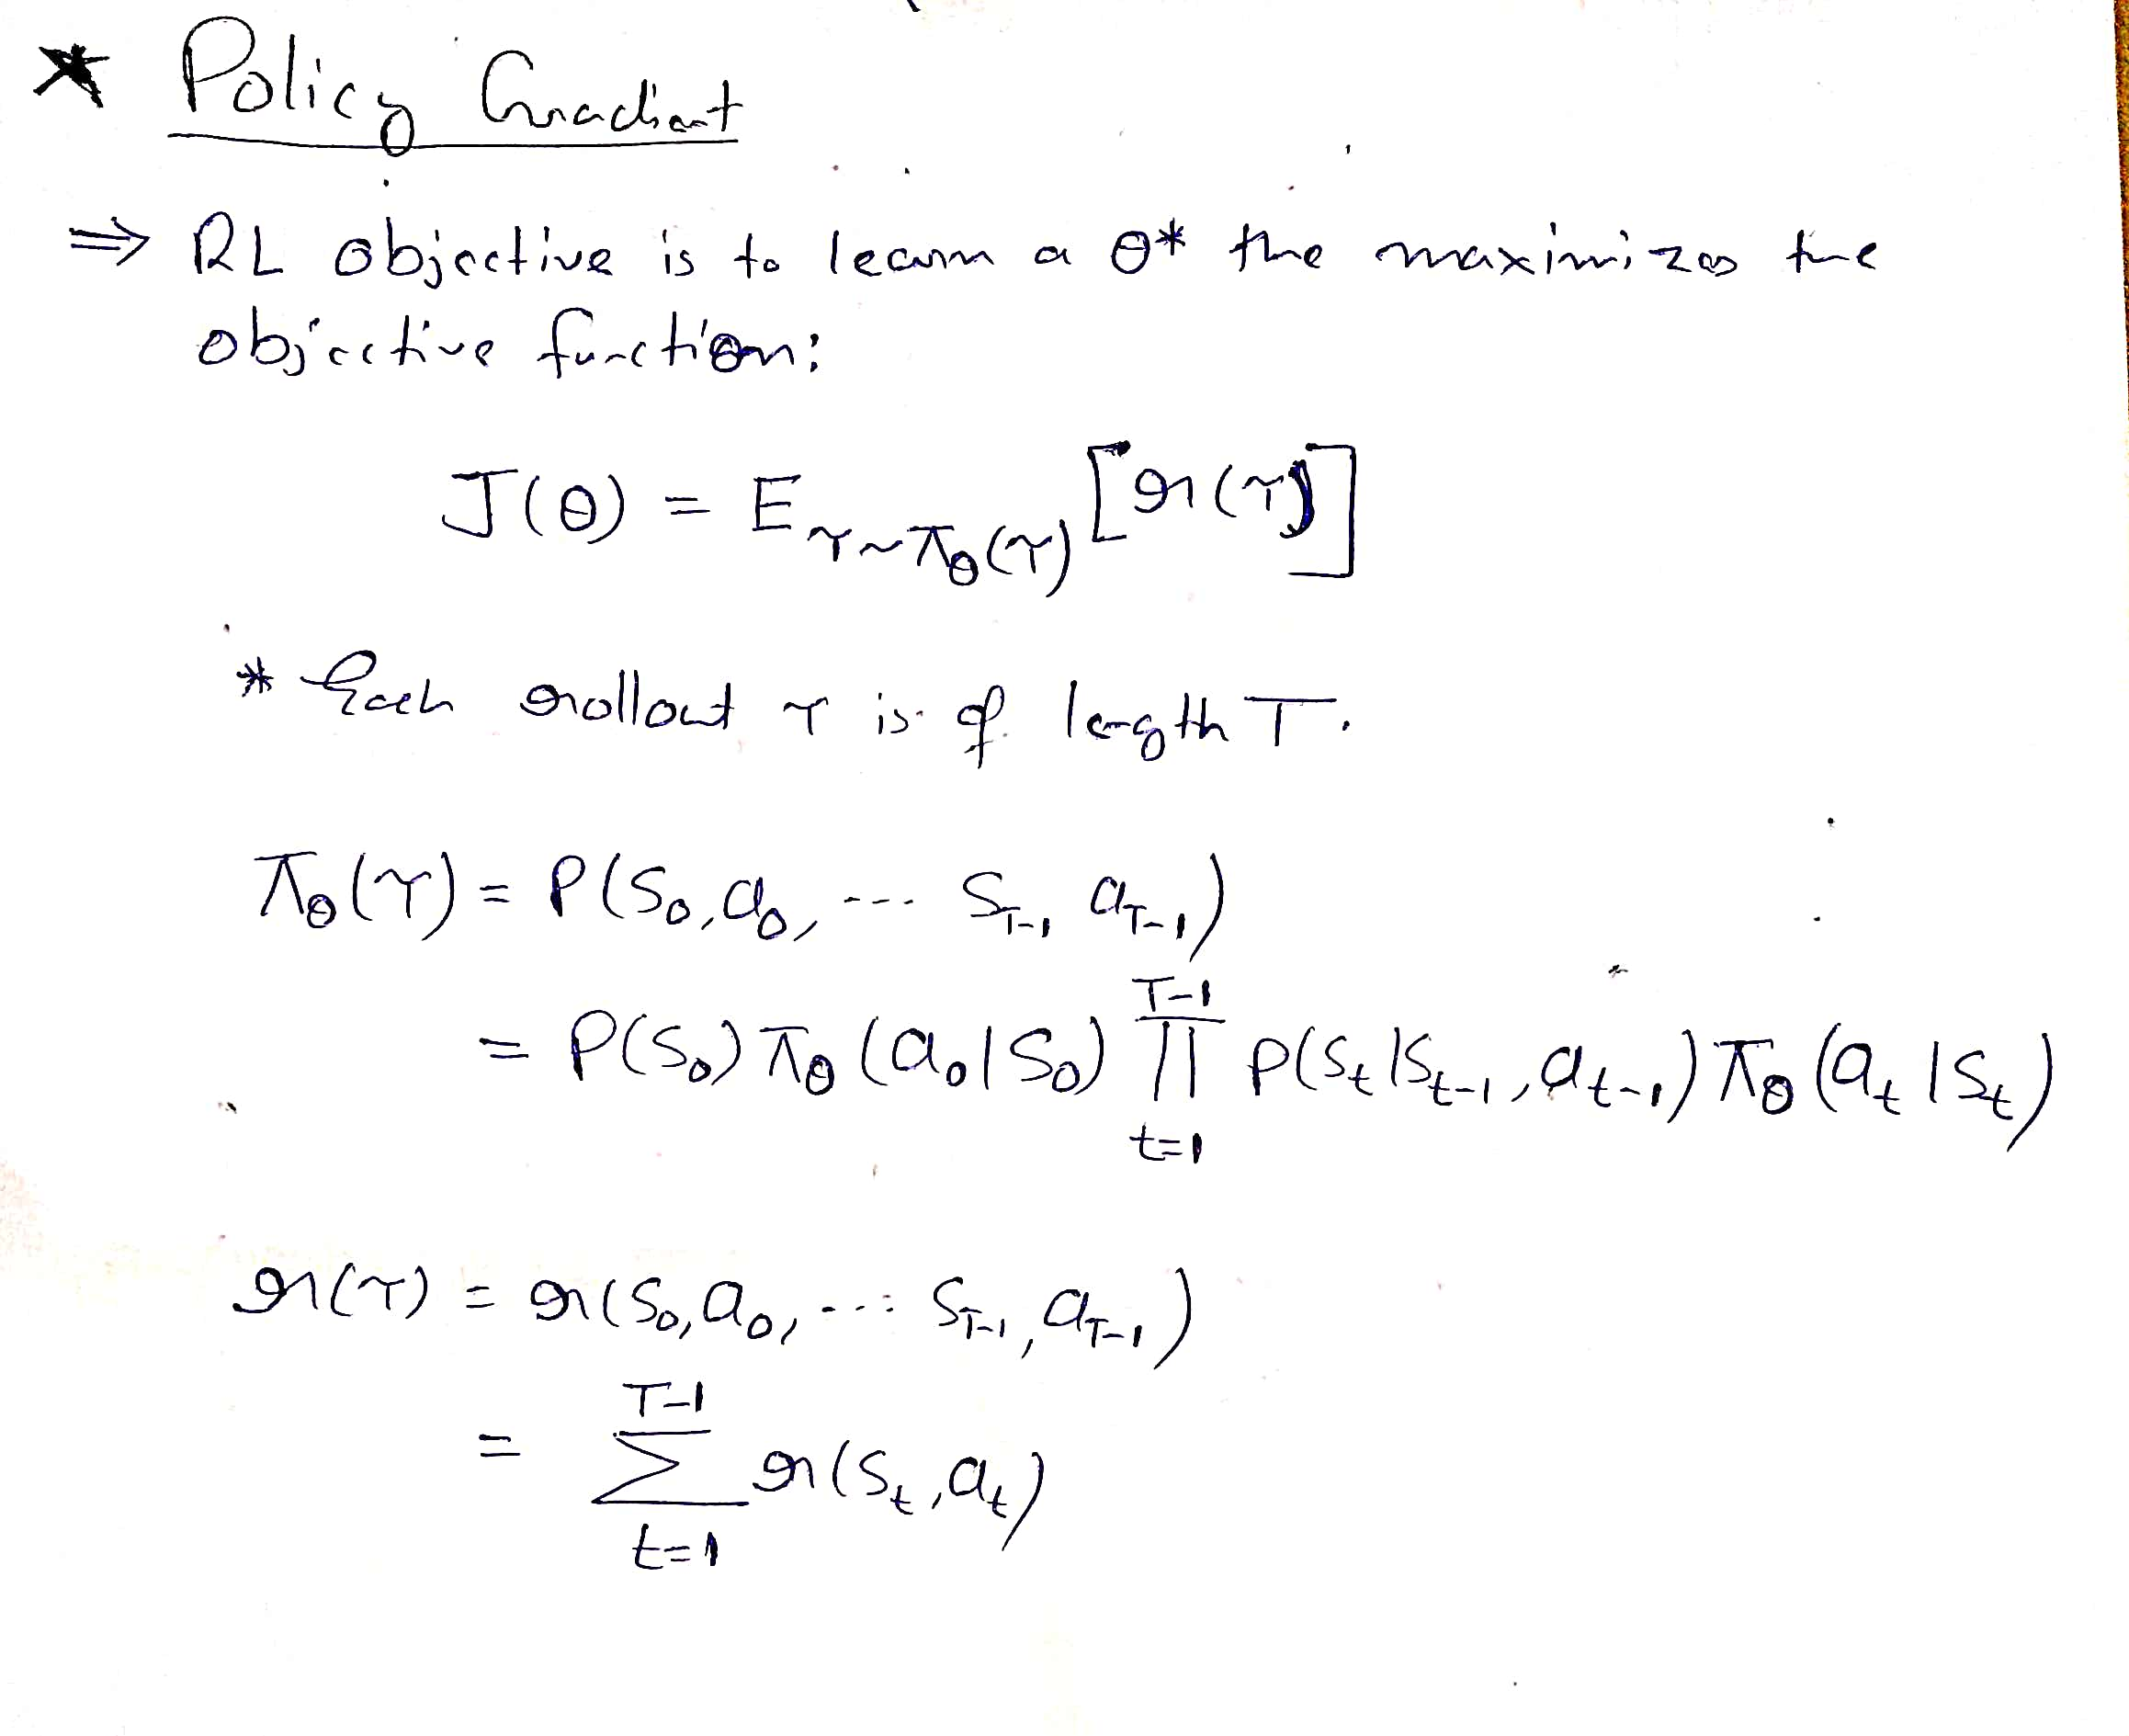 * Policy Gradient
⇒ RL objective is to learn a θ* the maximizes the
objective function:
J(θ) = E_{τ~π_θ(τ)} [r(τ)]
* Each rollout τ is of length T.
π_θ(τ) = P(s_0, a_0, --- s_{T-1}, a_{T-1})
= P(s_0) π_θ(a_0|s_0) ∏_{t=1}^{T-1} P(s_t|s_{t-1}, a_{t-1}) π_θ(a_t|s_t)
r(τ) = r(s_0, a_0, ... s_{T-1}, a_{T-1})
= Σ_{t=1}^{T-1} r(s_t, a_t)